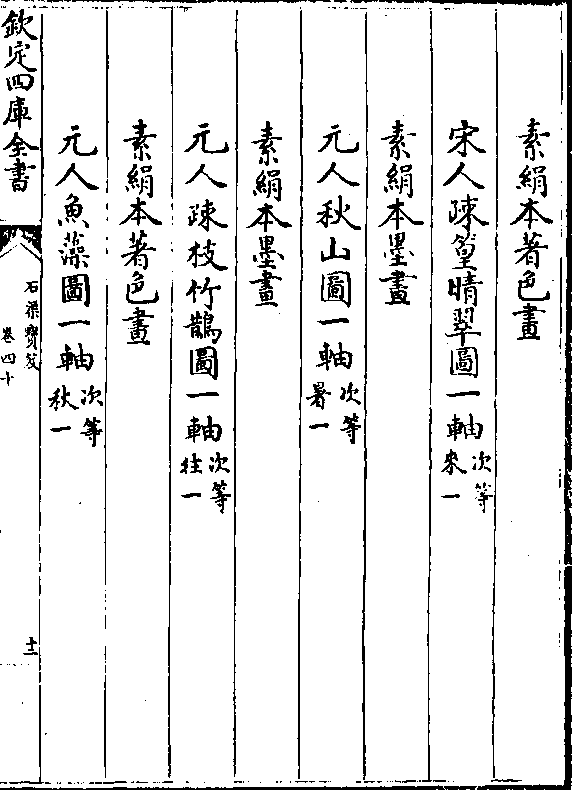 素絹本著色畫
宋人疎篁晴翠圖一軸次等來一
素絹本墨畫
元人秋山圖一軸次等暑一
素絹本墨畫
元人疎枝竹鵲圖一軸次等往一
素絹本著色畫
元人魚藻圖一軸次等秋一
欽定四庫全書
石渠寶笈
卷四十
十二